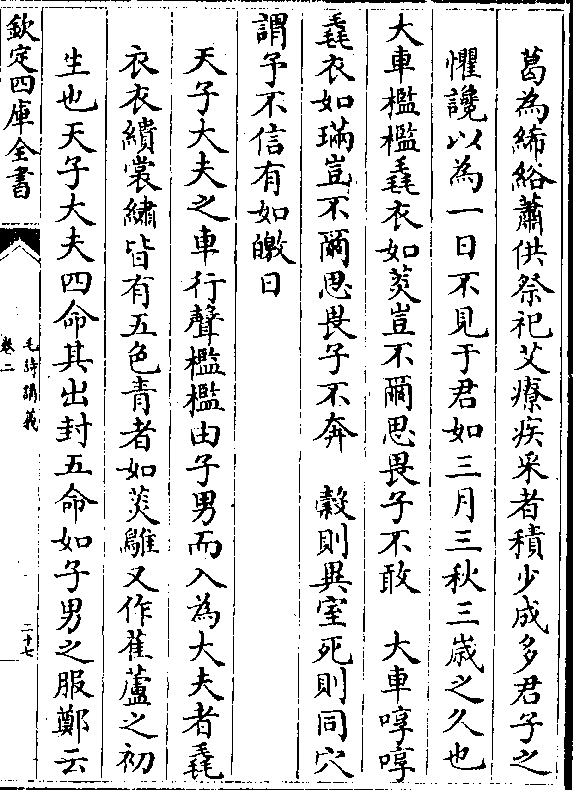 葛為絺綌蕭供祭祀艾療疾采者積少成多君子之
懼讒以為一日不見于君如三月三秋三歲之久也
大車檻檻毳衣如菼豈不爾思畏子不敢　大車啍啍
毳衣如璊豈不爾思畏子不奔　穀則異室死則同穴
謂予不信有如皦日
天子大夫之車行聲檻檻由子男而入為大夫者毳
衣衣繢裳繡皆有五色青者如菼鵻又作萑蘆之初
生也天子大夫四命其出封五命如子男之服鄭云
欽定四庫全書
毛詩講義
卷二
二十七